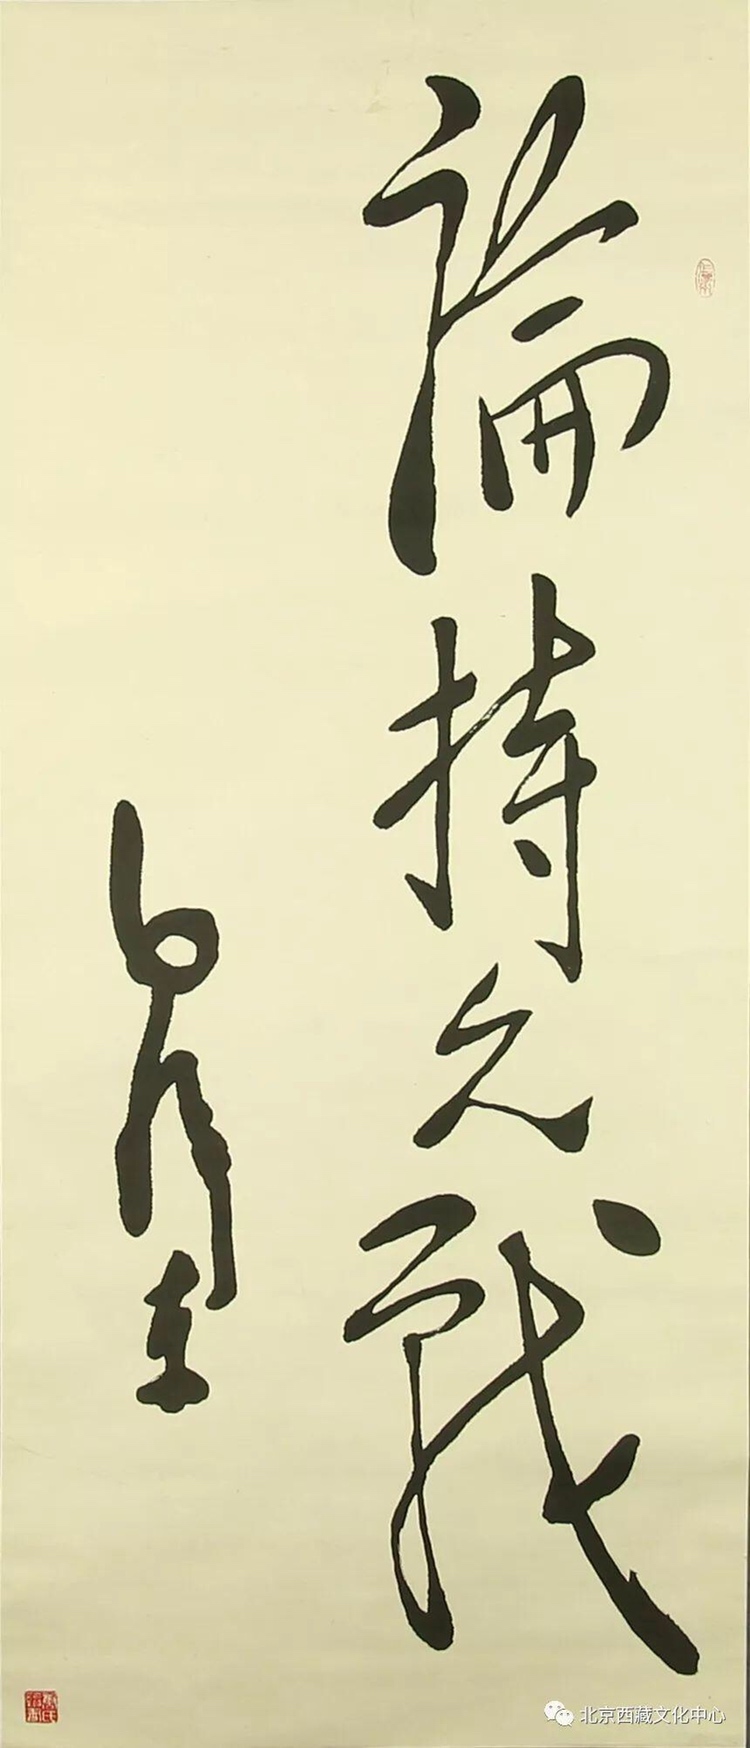 論持久戰
毛澤東
北京西藏文化中心